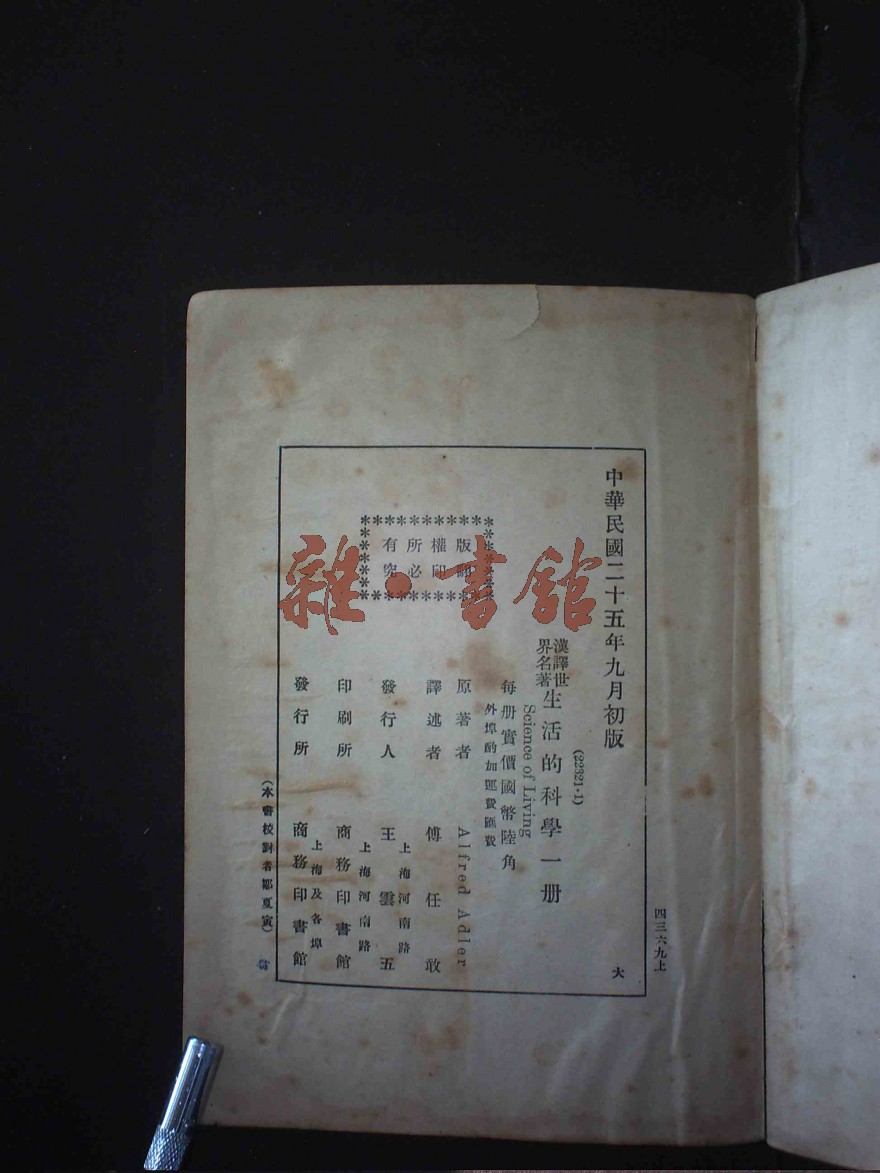 四三六九上
中華民國二十五年九月初版
大
(22321·1)
漢譯世界名著 生活的科學一册
Science of Living
每册實價國幣陸角
外埠酌加運費匯費
原著者 Alfred Adler
譯述者 傅任敢
上海河南路
發行人 王雲五
上海河南路
印刷所 商務印書館
上海及各埠
發行所 商務印書館
版權所有
印必究
(本書校對者鄒夏寅)
雜·書館